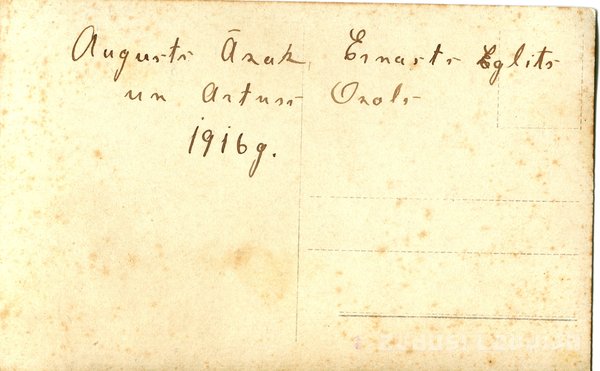 Augusts Āzak, Ernasts Eglits
un Arturs Ozols
1916g.